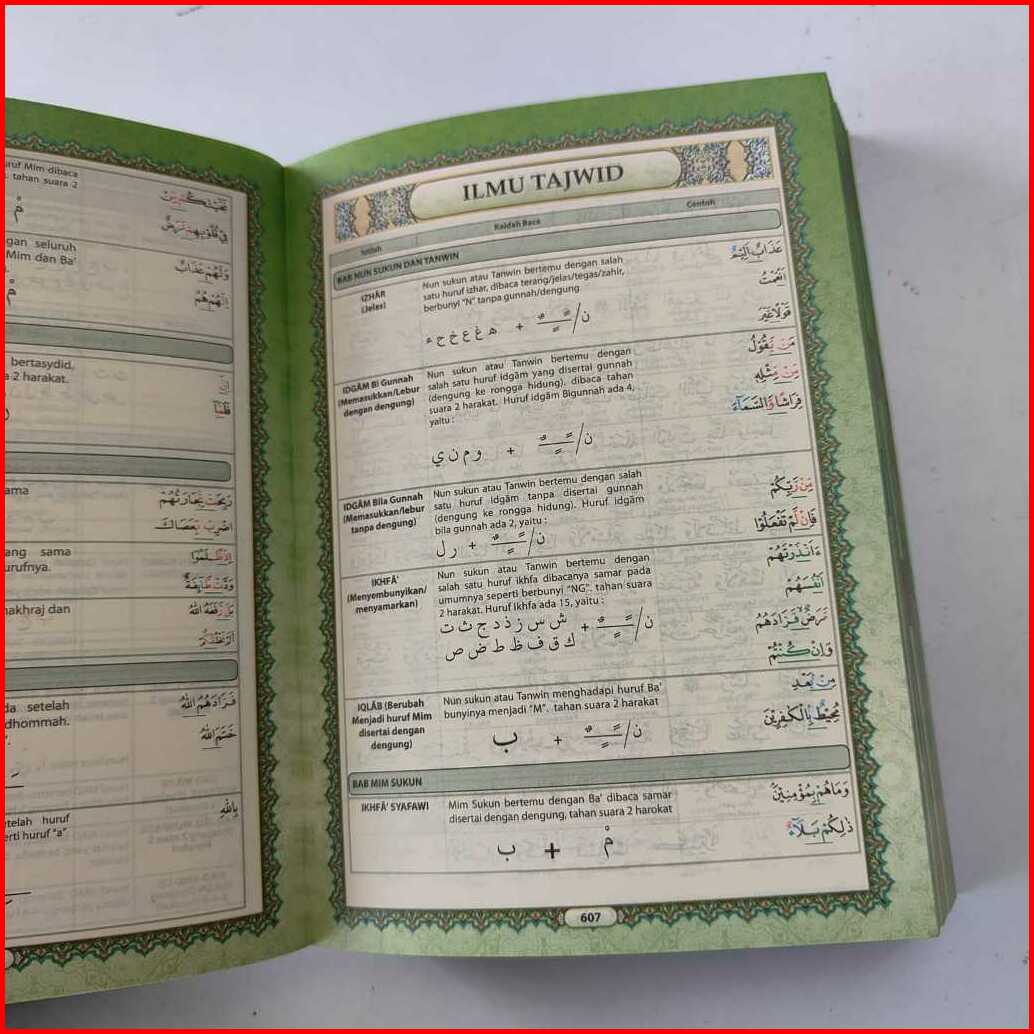 uruf Mim dibaca
tahan suara 2
مْ
فِي قُلُوْبِهِمْ مَّرَضٌ
gan seluruh
Mim dan Ba'
وَلَهُمْ عَذَابٌ
مْ
اِنَّهُمْ هُمْ
bertasydid,
a 2 harakat.
اِنَّ
ama
رَبِحَتْ تِّجَارَتُهُمْ
اضْرِبْ بِّعَصَاكَ
ang sama
urufnya.
اِذْ ظَّلَمُوْا
وَدَّتْ طَّاۤىِٕفَةٌ
makhraj dan
بَلْ رَّفَعَهُ اللّٰهُ
اَلَمْ نَخْلُقْكُّمْ
da setelah
dhommah.
فَزَادَهُمُ اللّٰهُ
خَتَمَ اللّٰهُ
etelah huruf
erti huruf "a"
بِاللّٰهِ
ILMU TAJWID
Istilah
Kaidah Baca
Contoh
BAB NUN SUKUN DAN TANWIN
IZHÂR
(Jelas)
Nun sukun atau Tanwin bertemu dengan salah
satu huruf izhar, dibaca terang/jelas/tegas/zahir,
berbunyi "N" tanpa gunnah/dengung
ن/ ـًـ ـٌـ ـٍـ + ه غ ع خ ح ء
عَذَابٌ اَلِيْمٌ
اَنْعَمْتَ
قَوْلًا غَيْرَ
IDGÂM Bi Gunnah
(Memasukkan/Lebur
dengan dengung)
Nun sukun atau Tanwin bertemu dengan
salah satu huruf idgâm yang disertai gunnah
(dengung ke rongga hidung). dibaca tahan
suara 2 harakat. Huruf idgâm Bigunnah ada 4,
yaitu :
ن/ ـًـ ـٌـ ـٍـ + و م ن ي
مَنْ يَّقُوْلُ
مِنْ مِّثْلِهٖ
فِرَاشًا وَّالسَّمَاۤءَ
IDGÂM Bila Gunnah
(Memasukkan/lebur
tanpa dengung)
Nun sukun atau Tanwin bertemu dengan salah
satu huruf idgâm tanpa disertai gunnah
(dengung ke rongga hidung). Huruf idgâm
bila gunnah ada 2, yaitu :
ن/ ـًـ ـٌـ ـٍـ + ر ل
مِنْ رَّبِّكُمْ
فَاِنْ لَّمْ تَفْعَلُوْا
IKHFÂ'
(Menyembunyikan/
menyamarkan)
Nun sukun atau Tanwin bertemu dengan
salah satu huruf ikhfa dibacanya samar pada
umumnya seperti berbunyi "NG". tahan suara
2 harakat. Huruf Ikhfa ada 15, yaitu :
ن/ ـًـ ـٌـ ـٍـ + ش س ز ذ د ج ث ت
ك ق ف ظ ط ض ص
ءَاَنْذَرْتَهُمْ
اَنْفُسَهُمْ
مَرَضٌ فَزَادَهُمُ
وَاِنْ كُنْتُمْ
IQLÂB (Berubah
Menjadi huruf Mim
disertai dengan
dengung)
Nun sukun atau Tanwin menghadapi huruf Ba'
bunyinya menjadi "M". tahan suara 2 harakat
ن/ ـًـ ـٌـ ـٍـ + ب
مِنْ بَعْدِ
مُحِيْطٌ بِالْكٰفِرِيْنَ
BAB MIM SUKUN
IKHFÂ' SYAFAWI
Mim Sukun bertemu dengan Ba' dibaca samar
disertai dengan dengung, tahan suara 2 harokat
مْ + ب
وَمَا هُمْ بِمُؤْمِنِيْنَ
ذٰلِكُمْ بَلَاۤءٌ
607